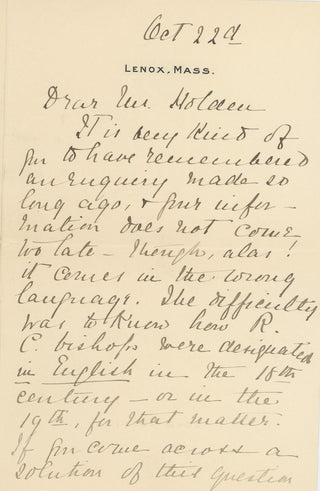 Oct 22d
LENOX, MASS.
Dear Mr. Holden
It is very kind of
you to have remembered
an enquiry made so
long ago, & your infor-
mation does not come
too late - though, alas!
it comes in the wrong
language. The difficulty
was to know how R.
C. bishops were designated
in English in the 18th
century - or in the
19th, for that matter.
If you come across a
solution of this question